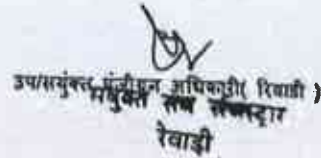 उप/सयुंक्त पंजीयन अधिकारी( रिवाडी )
संयुक्त सब रजिस्ट्रार
रेवाड़ी